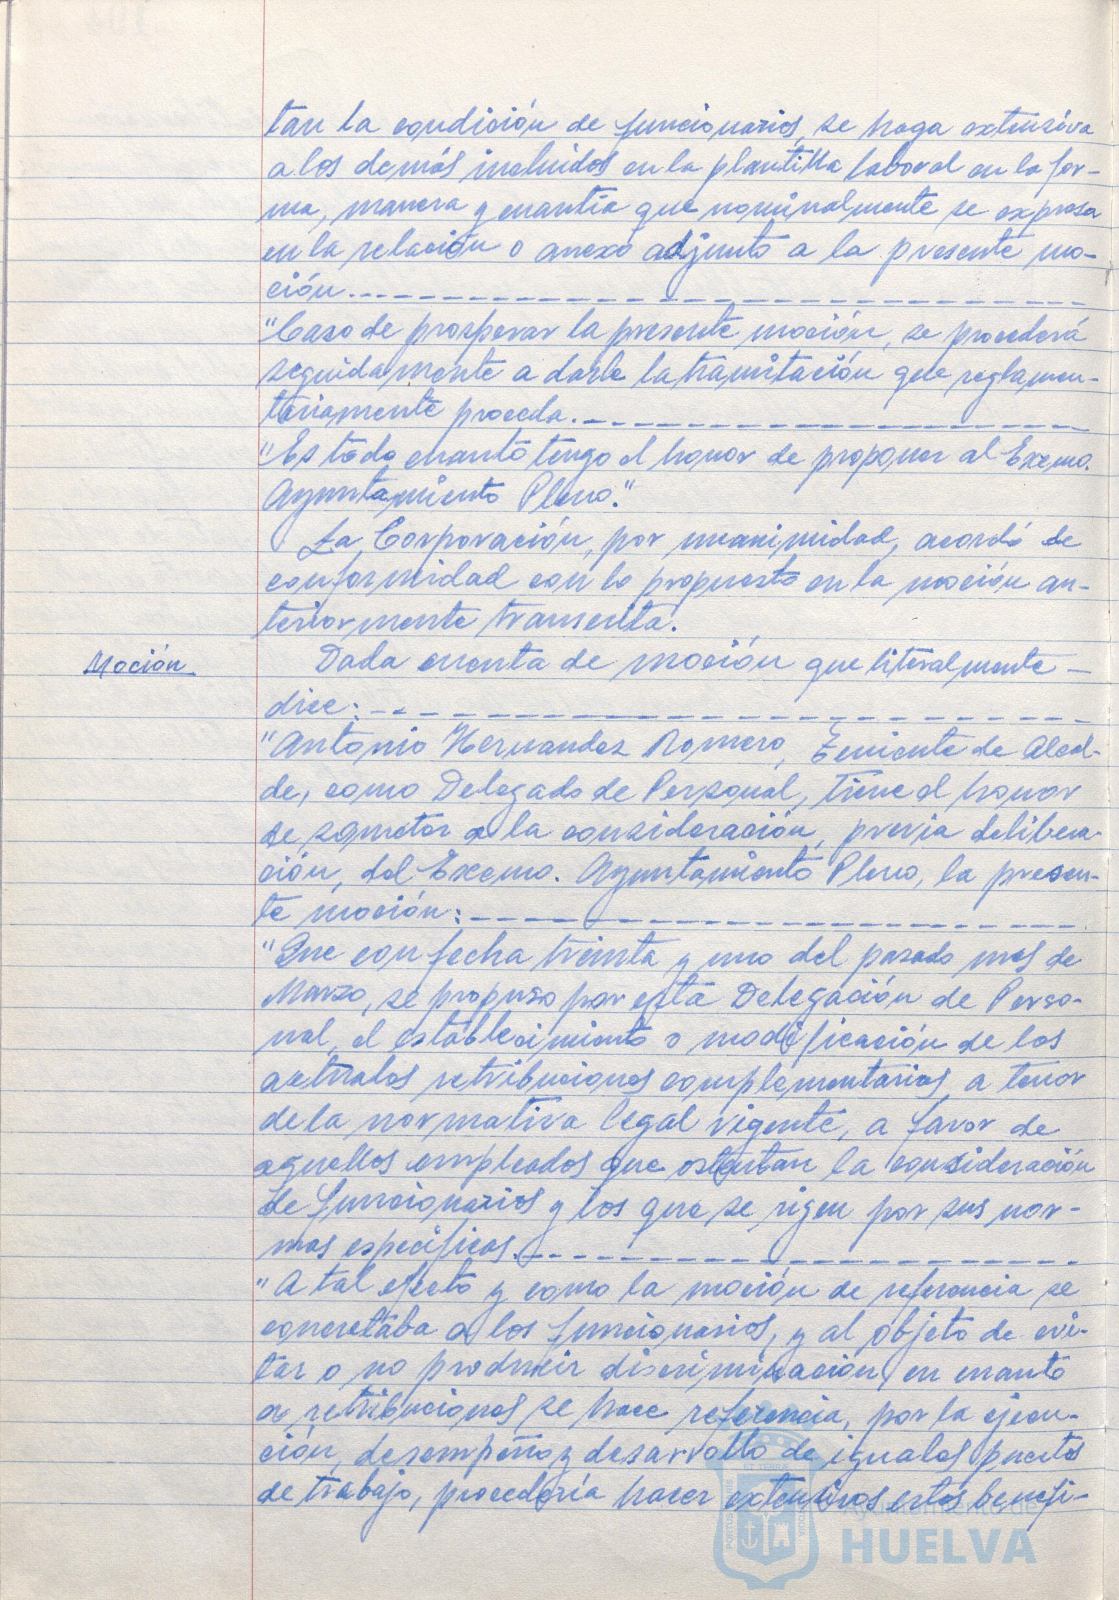 tan la condición de funcionarios, se haga extensiva
a los demás incluidos en la plantilla laboral en la for-
ma, manera y cuantía que nominalmente se expresa
en la relación o anexo adjunto a la presente mo-
ción.
"Caso de prosperar la presente moción, se procederá
seguidamente a darle la tramitación que reglamen-
tariamente proceda.
"Es todo cuanto tengo el honor de proponer al Excmo.
Ayuntamiento Pleno."
La Corporación, por unanimidad, acordó de
conformidad con lo propuesto en la moción an-
teriormente transcrita.
Moción
Dada cuenta de moción que literalmente
dice:
"Antonio Hernandez Romero, Teniente de Alcal-
de, como Delegado de Personal, tiene el honor
de someter a la consideración, previa delibera-
ción, del Excmo. Ayuntamiento Pleno, la presen-
te moción:
"Que con fecha treinta y uno del pasado mes de
Marzo, se propuso por esta Delegación de Perso-
nal, el establecimiento o modificación de las
actuales retribuciones complementarias a tenor
de la normativa legal vigente, a favor de
aquellos empleados que ostentan la consideración
de funcionarios y los que se rigen por sus nor-
mas específicas.
"A tal efecto y como la moción de referencia se
concretaba a los funcionarios, y al objeto de evi-
tar o no producir discriminación en cuanto
a retribuciones se hace referencia, por la ejecu-
ción, desempeño y desarrollo de iguales puestos
de trabajo, procedería hacer extensivos estos benefi-
Ayuntamiento de
HUELVA